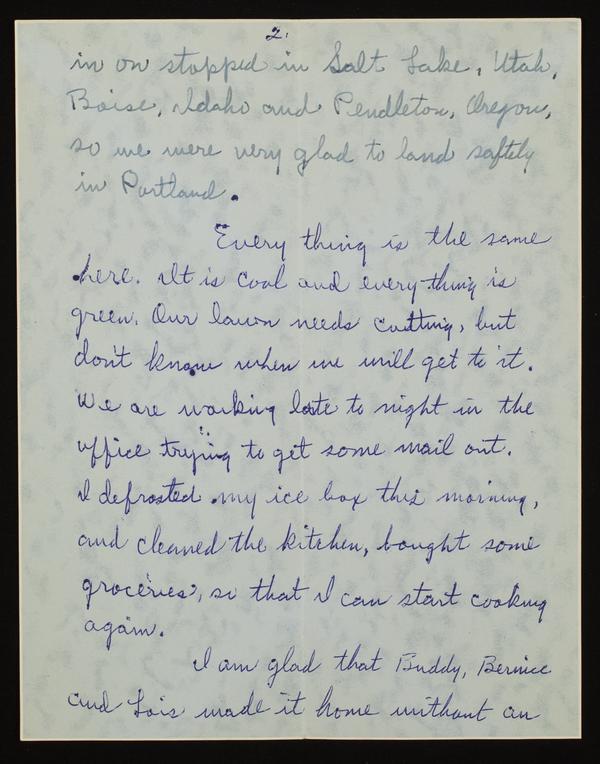 2.
in on stopped in Salt Lake, Utah,
Boise, Idaho and Pendleton, Oregon,
so we were very glad to land saftely
in Portland.
Every thing is the same
here. It is cool and every thing is
green. Our lawn needs cutting, but
don't know when we will get to it.
We are working late to night in the
office trying to get some mail out.
I defrosted my ice box this morning,
and cleaned the kitchen, bought some
groceries, so that I can start cooking
again.
I am glad that Buddy, Bernice
and Lois made it home without an